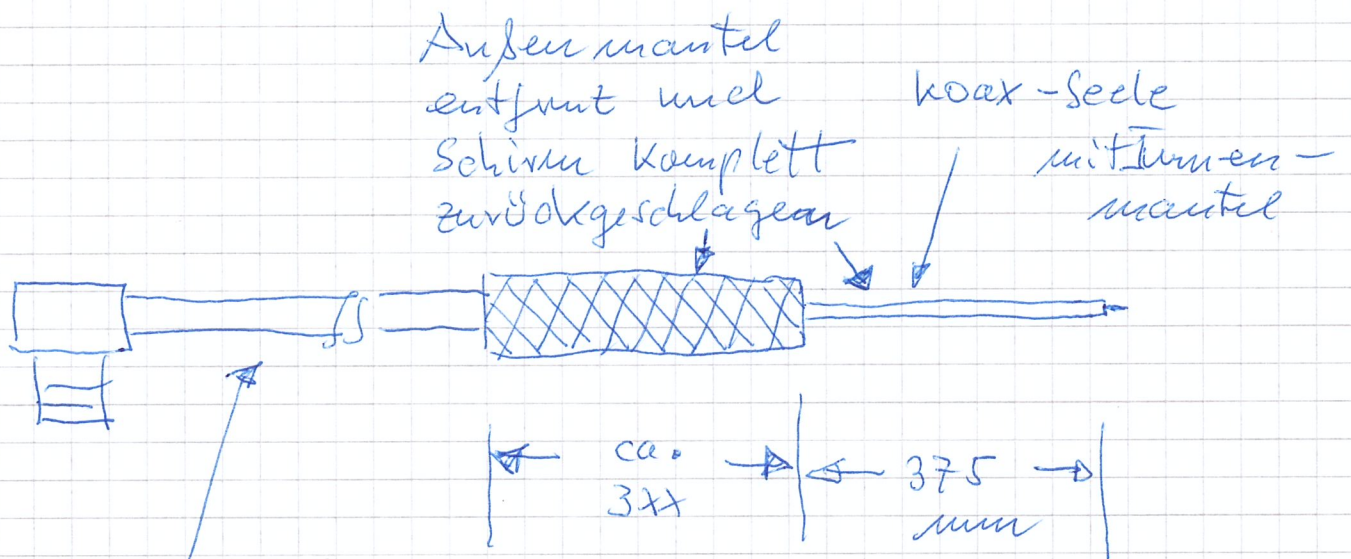 Außenmantel
entfernt und
Schirm komplett
zurückgeschlagen
Koax-Seele
mit Innen-
mantel
ca.
3xx
375
mm